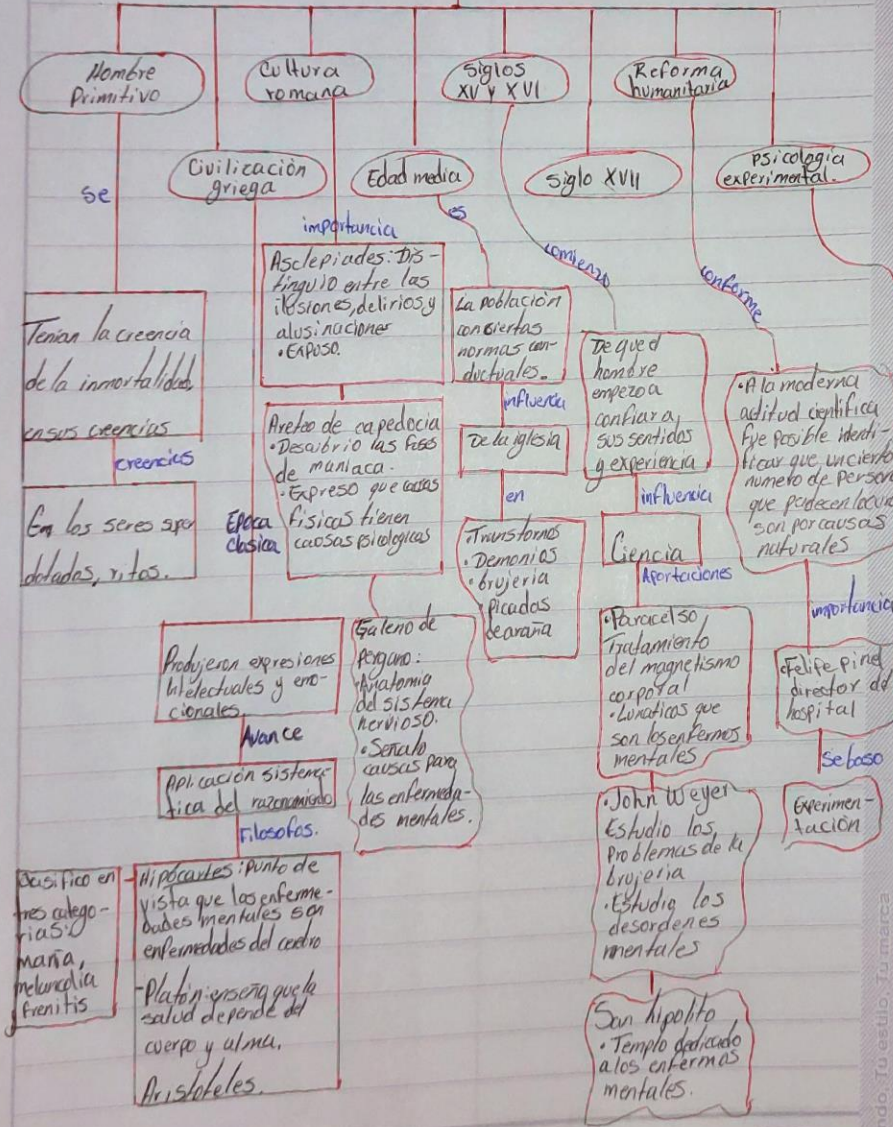 Hombre
Primitivo
Cultura
romana
Siglos
XV y XVI
Reforma
humanitaria
Civilización
griega
Edad media
Siglo XVII
Psicologia
experimental.
se
Tenian la creencia
de la inmortalidad,
en sus creencias
creencias
En los seres super
dotados, ritos.
Epoca
clasica
Produjeron expresiones
intelectuales y emo-
cionales.
Avance
Aplicación sistema-
tica del razonamiento
Filosofos.
Clasifico en
tres catego-
rias:
mania,
melancolia
frenitis
-Hipócartes: punto de
vista que las enferme-
dades mentales son
enfermedades del cerebro
-Platón: enseña que la
salud depende del
cuerpo y alma.
Aristoteles.
importancia
Asclepiades: Dis-
tinguio entre las
ilusiones, delirios, y
alusinaciones
•Expuso.
Areteo de capedocia
•Descubrio las fases
de maniaca.
•Expreso que
fisicas tienen
causas psicologicas
Galeno de
pérgano:
•Anatomia
del sistema
nervioso.
•Señalo
causas para
las enfermeda-
des mentales.
es
La población
con ciertas
normas con-
ductuales.
influencia
De la iglesia
en
•Transtornos
•Demonios
•brujeria
picadas
de araña
comienzo
De que el
hombre
empezo a
confiar a
sus sentidos
y experiencia
influencia
Ciencia
Aportaciones
•Paracelso,
Tratamiento
del magnetismo
corporal
•Lunaticos que
son los enfermos
mentales
•John Weyer
Estudio los
problemas de la
brujeria
•Estudio los
desordenes
mentales
San hipolito
•Templo dedicado
a los enfermos
mentales.
conforme
•A la moderna
actitud cientifica
fue posible identi-
ficar que, un cierto
numero de person
que padecen locura
son por causas
naturales
importancia
•Felife pinel
director del
hospital
se baso
Experimen-
tación
ndo, Tu estilo, Tu marca